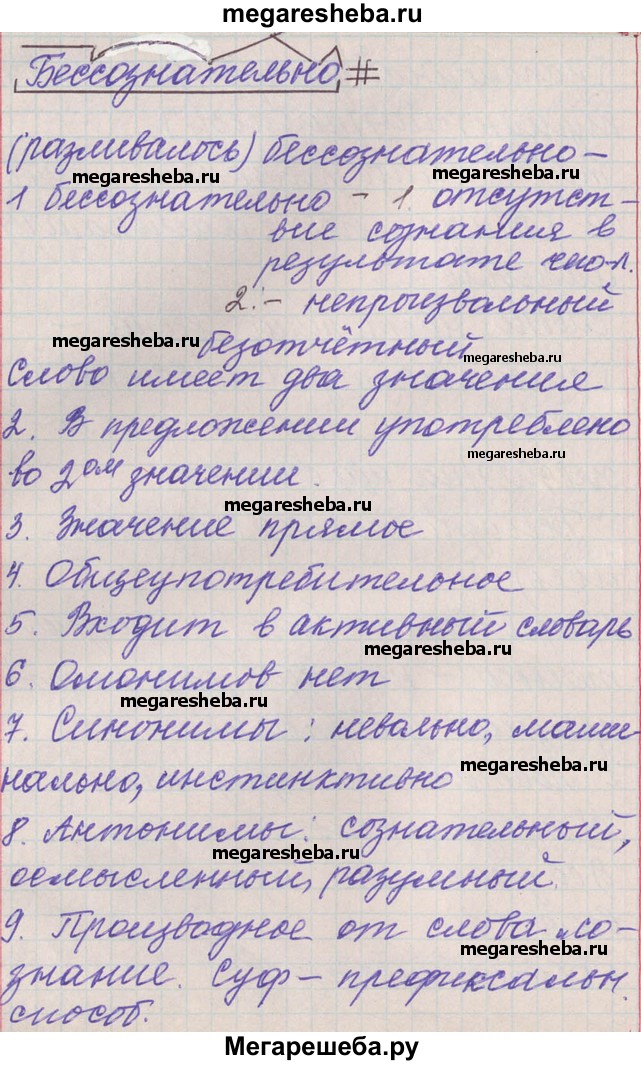 megaresheba.ru
Бессознательно#
(разливалось) бессознательно –
megaresheba.ru
megaresheba.ru
1 бессознательно – 1. отсутст-
вие сознания в
результате чего-л.
2. – непроизвольный
megaresheba.ru
безотчётный
megaresheba.ru
Слово имеет два значения
2. В предложении употреблено
megaresheba.ru
во 2ом значении.
megaresheba.ru
3. Значение прямое
4. Общеупотребительное
5. Входит в активный словарь
megaresheba.ru
6. Омонимов нет
megaresheba.ru
7. Синонимы: невольно, маши-
megaresheba.ru
нально, инстинктивно
8. Антонимы: сознательный,
megaresheba.ru
осмысленный, разумный.
9. Производное от слова „со-
megaresheba.ru
знание. Суф – префиксальн.
способ.
Мегарешеба.ру